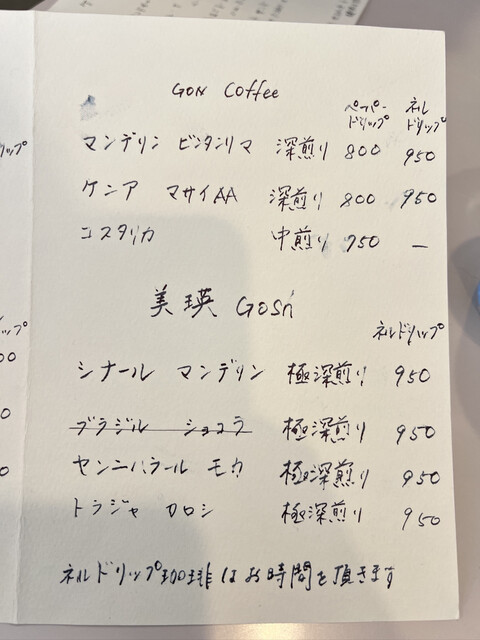 GON Coffee
ペーパー ドリップ ネル ドリップ
マンデリン ビンタンリマ 深煎り 800 950
ケニア マサイAA 深煎り 800 950
コスタリカ 中煎り 750 —
美瑛 GOSH
ネルドリップ
シナール マンデリン 極深煎り 950
ブラジル ショコラ 極深煎り 950
ヤンニハラール モカ 極深煎り 950
トラジャ カロシ 極深煎り 950
ネルドリップ珈琲はお時間を頂きます
リップ
ップ
00
0
0